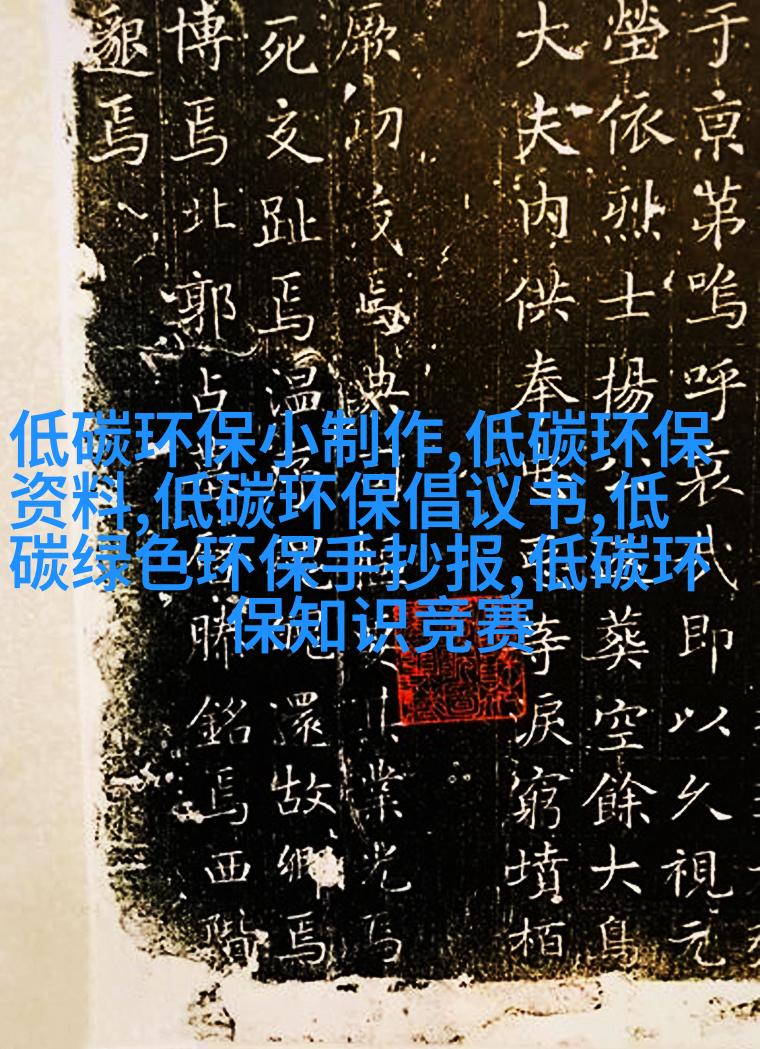 低碳环保小制作,低碳环保
资料,低碳环保倡议书,低
碳绿色环保手抄报,低碳环
保知识竞赛
于京第嗚呼哀哉即以久視元
塋依烈士揚葬空餘大鳥
大夫内供奉寺淚窮墳栢
厥功焉典業光焉
死交趾焉温還故鄉焉
博焉北郭占銘焉西階
邈焉